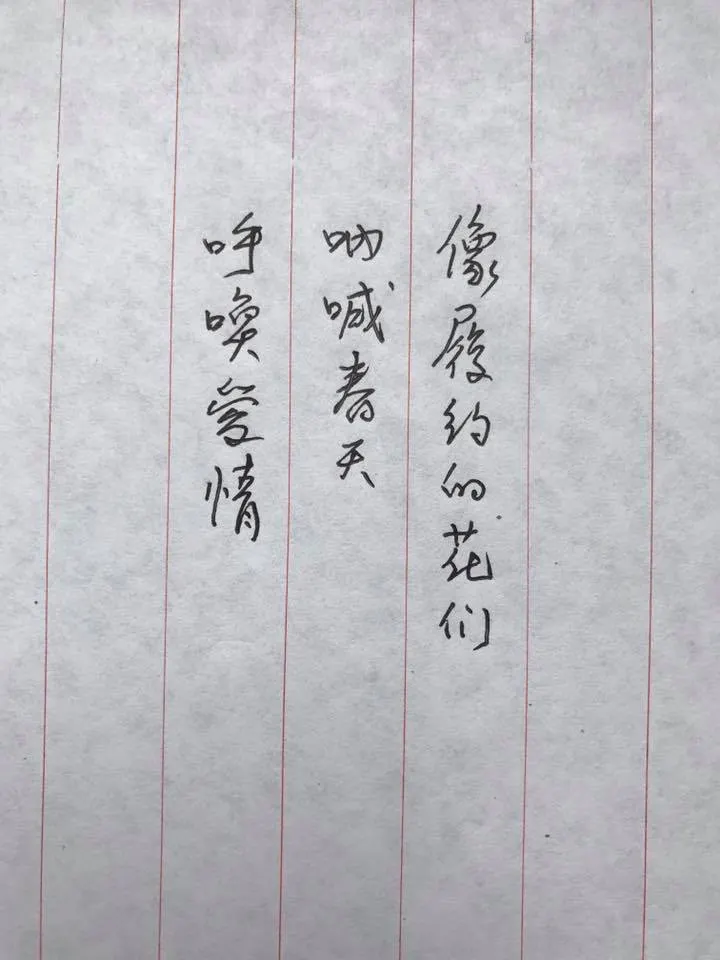 像履约的花们
呐喊春天
呼唤爱情